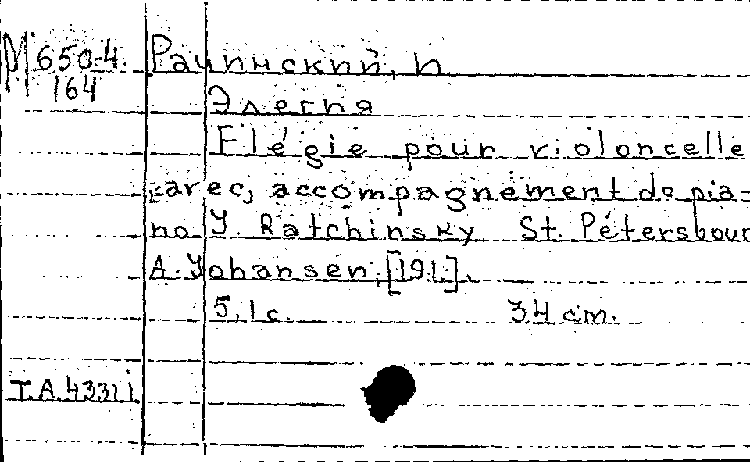 М 650-4. Рачинский, И
164
Элегия
Elégie pour violoncelle
avec, accompagnement de pia-
no Y. Ratchinsky St. Pétersbour
A. Johansen, [191.].
5, 1 с. 34 cm.